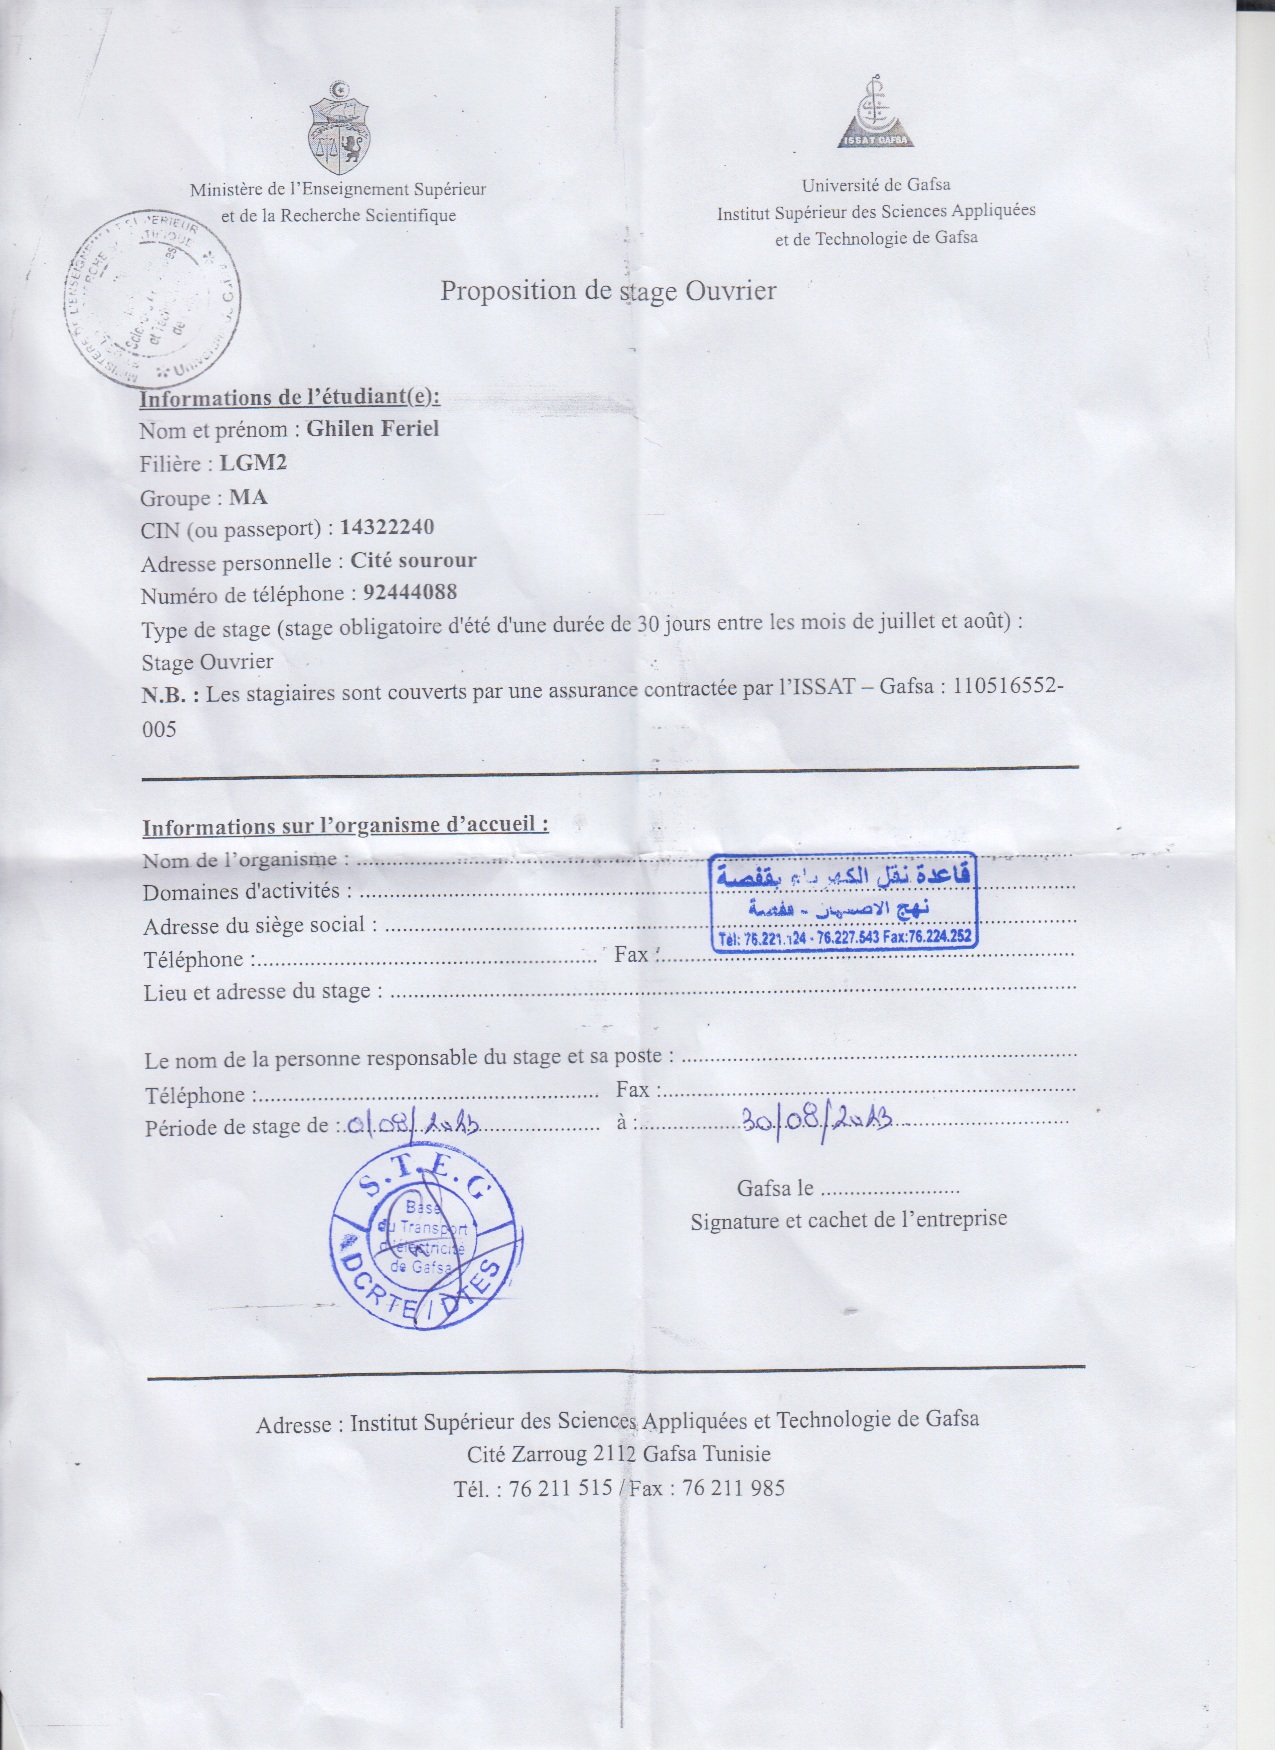 ISSAT GAFSA
Ministère de l'Enseignement Supérieur
et de la Recherche Scientifique
Université de Gafsa
Institut Supérieur des Sciences Appliquées
et de Technologie de Gafsa
Proposition de stage Ouvrier
Informations de l'étudiant(e):
Nom et prénom : Ghilen Feriel
Filière : LGM2
Groupe : MA
CIN (ou passeport) : 14322240
Adresse personnelle : Cité sourour
Numéro de téléphone : 92444088
Type de stage (stage obligatoire d'été d'une durée de 30 jours entre les mois de juillet et août) :
Stage Ouvrier
N.B. : Les stagiaires sont couverts par une assurance contractée par l'ISSAT – Gafsa : 110516552-
005
Informations sur l'organisme d'accueil :
Nom de l'organisme :
Domaines d'activités :
Adresse du siège social :
Téléphone : Fax :
Lieu et adresse du stage :
قاعدة نقل الكهرباء بقفصة
نهج الاصبهان - قفصة
Tél: 76.221.124 - 76.227.543 Fax:76.224.252
Le nom de la personne responsable du stage et sa poste :
Téléphone : Fax :
Période de stage de : 01/08/2023 à : 30/08/2023
S.T.E.G
Base
du Transport
d'électricité
de Gafsa
DCRTE / DTES
Gafsa le
Signature et cachet de l'entreprise
Adresse : Institut Supérieur des Sciences Appliquées et Technologie de Gafsa
Cité Zarroug 2112 Gafsa Tunisie
Tél. : 76 211 515 / Fax : 76 211 985